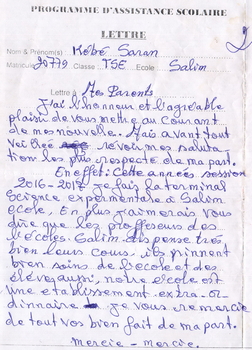 PROGRAMME D'ASSISTANCE SCOLAIRE
LETTRE
2
Nom & Prénom(s) Kébé Saran
Matricule 20779 Classe TSE Ecole Salim
Lettre à Mes Parents
J'ai l'honneur et l'agréable
plaisir de vous mettre au courant
de mes nouvelle. Mais avant tout
veillez revoir mes saluta
tion les plus respecté de ma part.
En effet: Cette années session
2016-2017 je fais la terminal
Science experimentale à Salim
école, En plus j'aimerais vous
dire que les proffeseurs de
l'écoles Salim dispense très
bien leurs cours, ils prinnent
bien soins de l'ecole et des
élève aussi, notre école est
une établissement extra-or-
dinnaire je vous remercie
de tout vos bien fait de ma part.
Mercie - mercie.